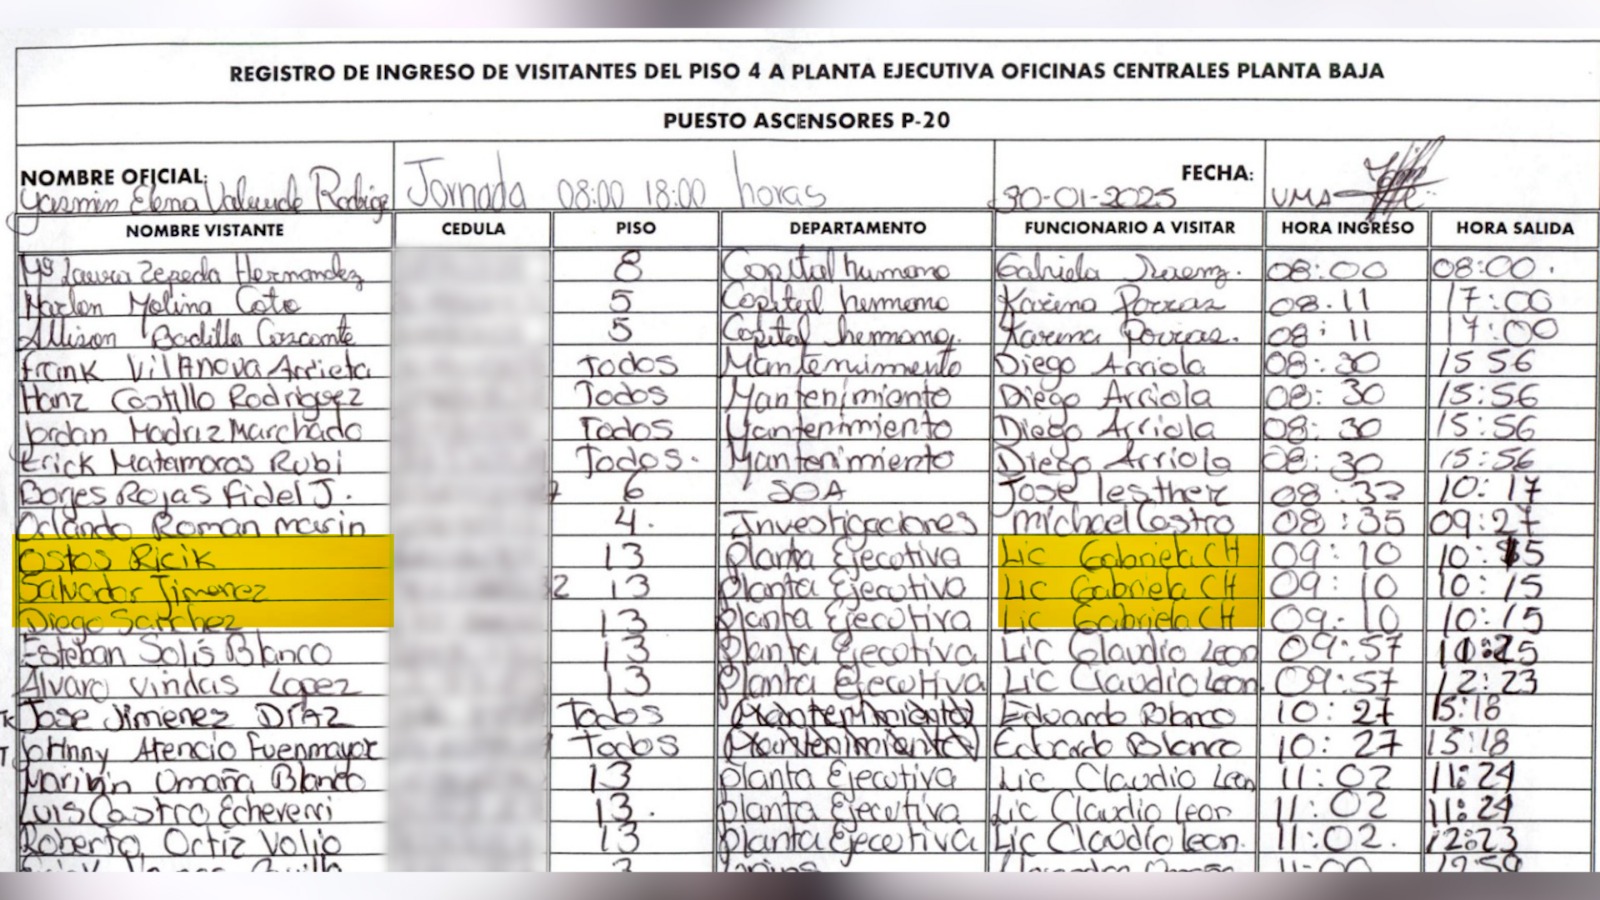 REGISTRO DE INGRESO DE VISITANTES DEL PISO 4 A PLANTA EJECUTIVA OFICINAS CENTRALES PLANTA BAJA
PUESTO ASCENSORES P-20
NOMBRE OFICIAL: Yasmin Elena Valverde Jornada 08:00 18:00 horas FECHA: 30-01-2025 UMA
NOMBRE VISTANTE CEDULA PISO DEPARTAMENTO FUNCIONARIO A VISITAR HORA INGRESO HORA SALIDA
Mª Laura Zepeda Hernandez 8 Capital humano Gabriela 08:00 08:00.
Marlon Molina Coto 5 Capital humano Karina Porras 08:11 17:00
Allison Badilla 5 Capital humano. Karina Porras. 08:11 17:00
Frank VilANova Arrieta Todos Mantenimiento Diego Arriola 08:30 15 56
Hanz Castillo Rodriguez Todos Mantenimiento Diego Arriola 08:30 15:56
Jordan Madriz Marchado Todos Mantenimiento Diego Arriola 08:30 15:56
Erick Matamoros Rubi Todos. Mantenimiento Diego Arriola 08:30 15:56
Borges Rojas Fidel J. 6 SOA Jose lesther 08:32 10:17
Orlando Roman marin 4. Investigaciones michael Castro 08:35 09:27
Ostos Ricik 13 planta Ejecutiva Lic Gabriela CH 09:10 10:15
Salvador Jimenez 13 planta Ejecutiva Lic Gabriela CH 09:10 10:15
Diego Sanchez 13 planta Ejecutiva Lic Gabriela CH 09:10 10:15
Esteban Solis Blanco 13 planta Ejecutiva Lic Claudio Leon 09:57
Alvaro vindas Lopez 13 planta Ejecutiva Lic Claudio Leon. 09:57 12:23
Jose Jimenez DIAZ Todos Mantenimiento Eduardo Blanco 10:27 15:18
Johnny Atencio Fuenmayor Todos Mantenimiento Eduardo Blanco 10:27 15:18
Marilyn Omaña Blanco 13 planta Ejecutiva Lic Claudio Leon 11:02 11:24
Luis Castro Echeverri 13. planta Ejecutiva Lic Claudio Leon 11:02 11:24
Roberto Ortiz Volio 13 planta Ejecutiva Lic Claudio Leon. 11:02. 12:23